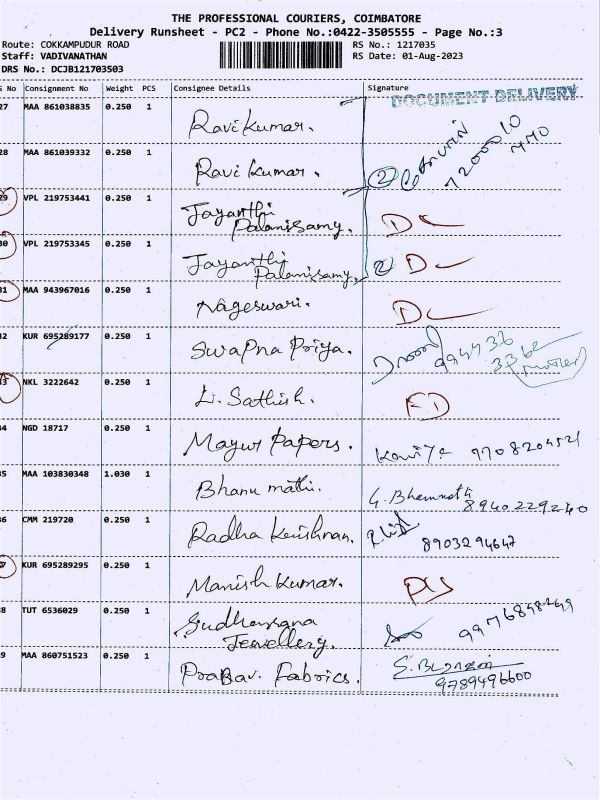 THE PROFESSIONAL COURIERS, COIMBATORE
Delivery Runsheet - PC2 - Phone No.:0422-3505555 - Page No.:3
Route: COKKAMPUDUR ROAD
RS No.: 1217035
Staff: VADIVANATHAN
RS Date: 01-Aug-2023
DRS No.: DCJB121703503
S No Consignment No Weight PCS Consignee Details Signature
DOCUMENT DELIVERY
27 MAA 861038835 0.250 1 Ravi Kumar.
28 MAA 861039332 0.250 1 Ravi Kumar. 2
29 VPL 219753441 0.250 1 Jayanthi
Palanisamy. D
30 VPL 219753345 0.250 1 Jayanthi
Palanisamy. 2 D
31 MAA 943967016 0.250 1 Nageswari. D
32 KUR 695289177 0.250 1 Swapna Priya. 994736
3362
33 NKL 3222642 0.250 1 L. Sathish.
34 NGD 18717 0.250 1 Mayur Papers. 9708204521
35 MAA 103830348 1.030 1 Bhanu mathi. G. Bhamnath
8940229240
36 CMM 219720 0.250 1 Radha Krishnan.
8903294647
37 KUR 695289295 0.250 1 Manish Kumar.
38 TUT 6536029 0.250 1 Sudharsana
Jewellery.
39 MAA 860751523 0.250 1 PraBav. Fabrics.
9789496600